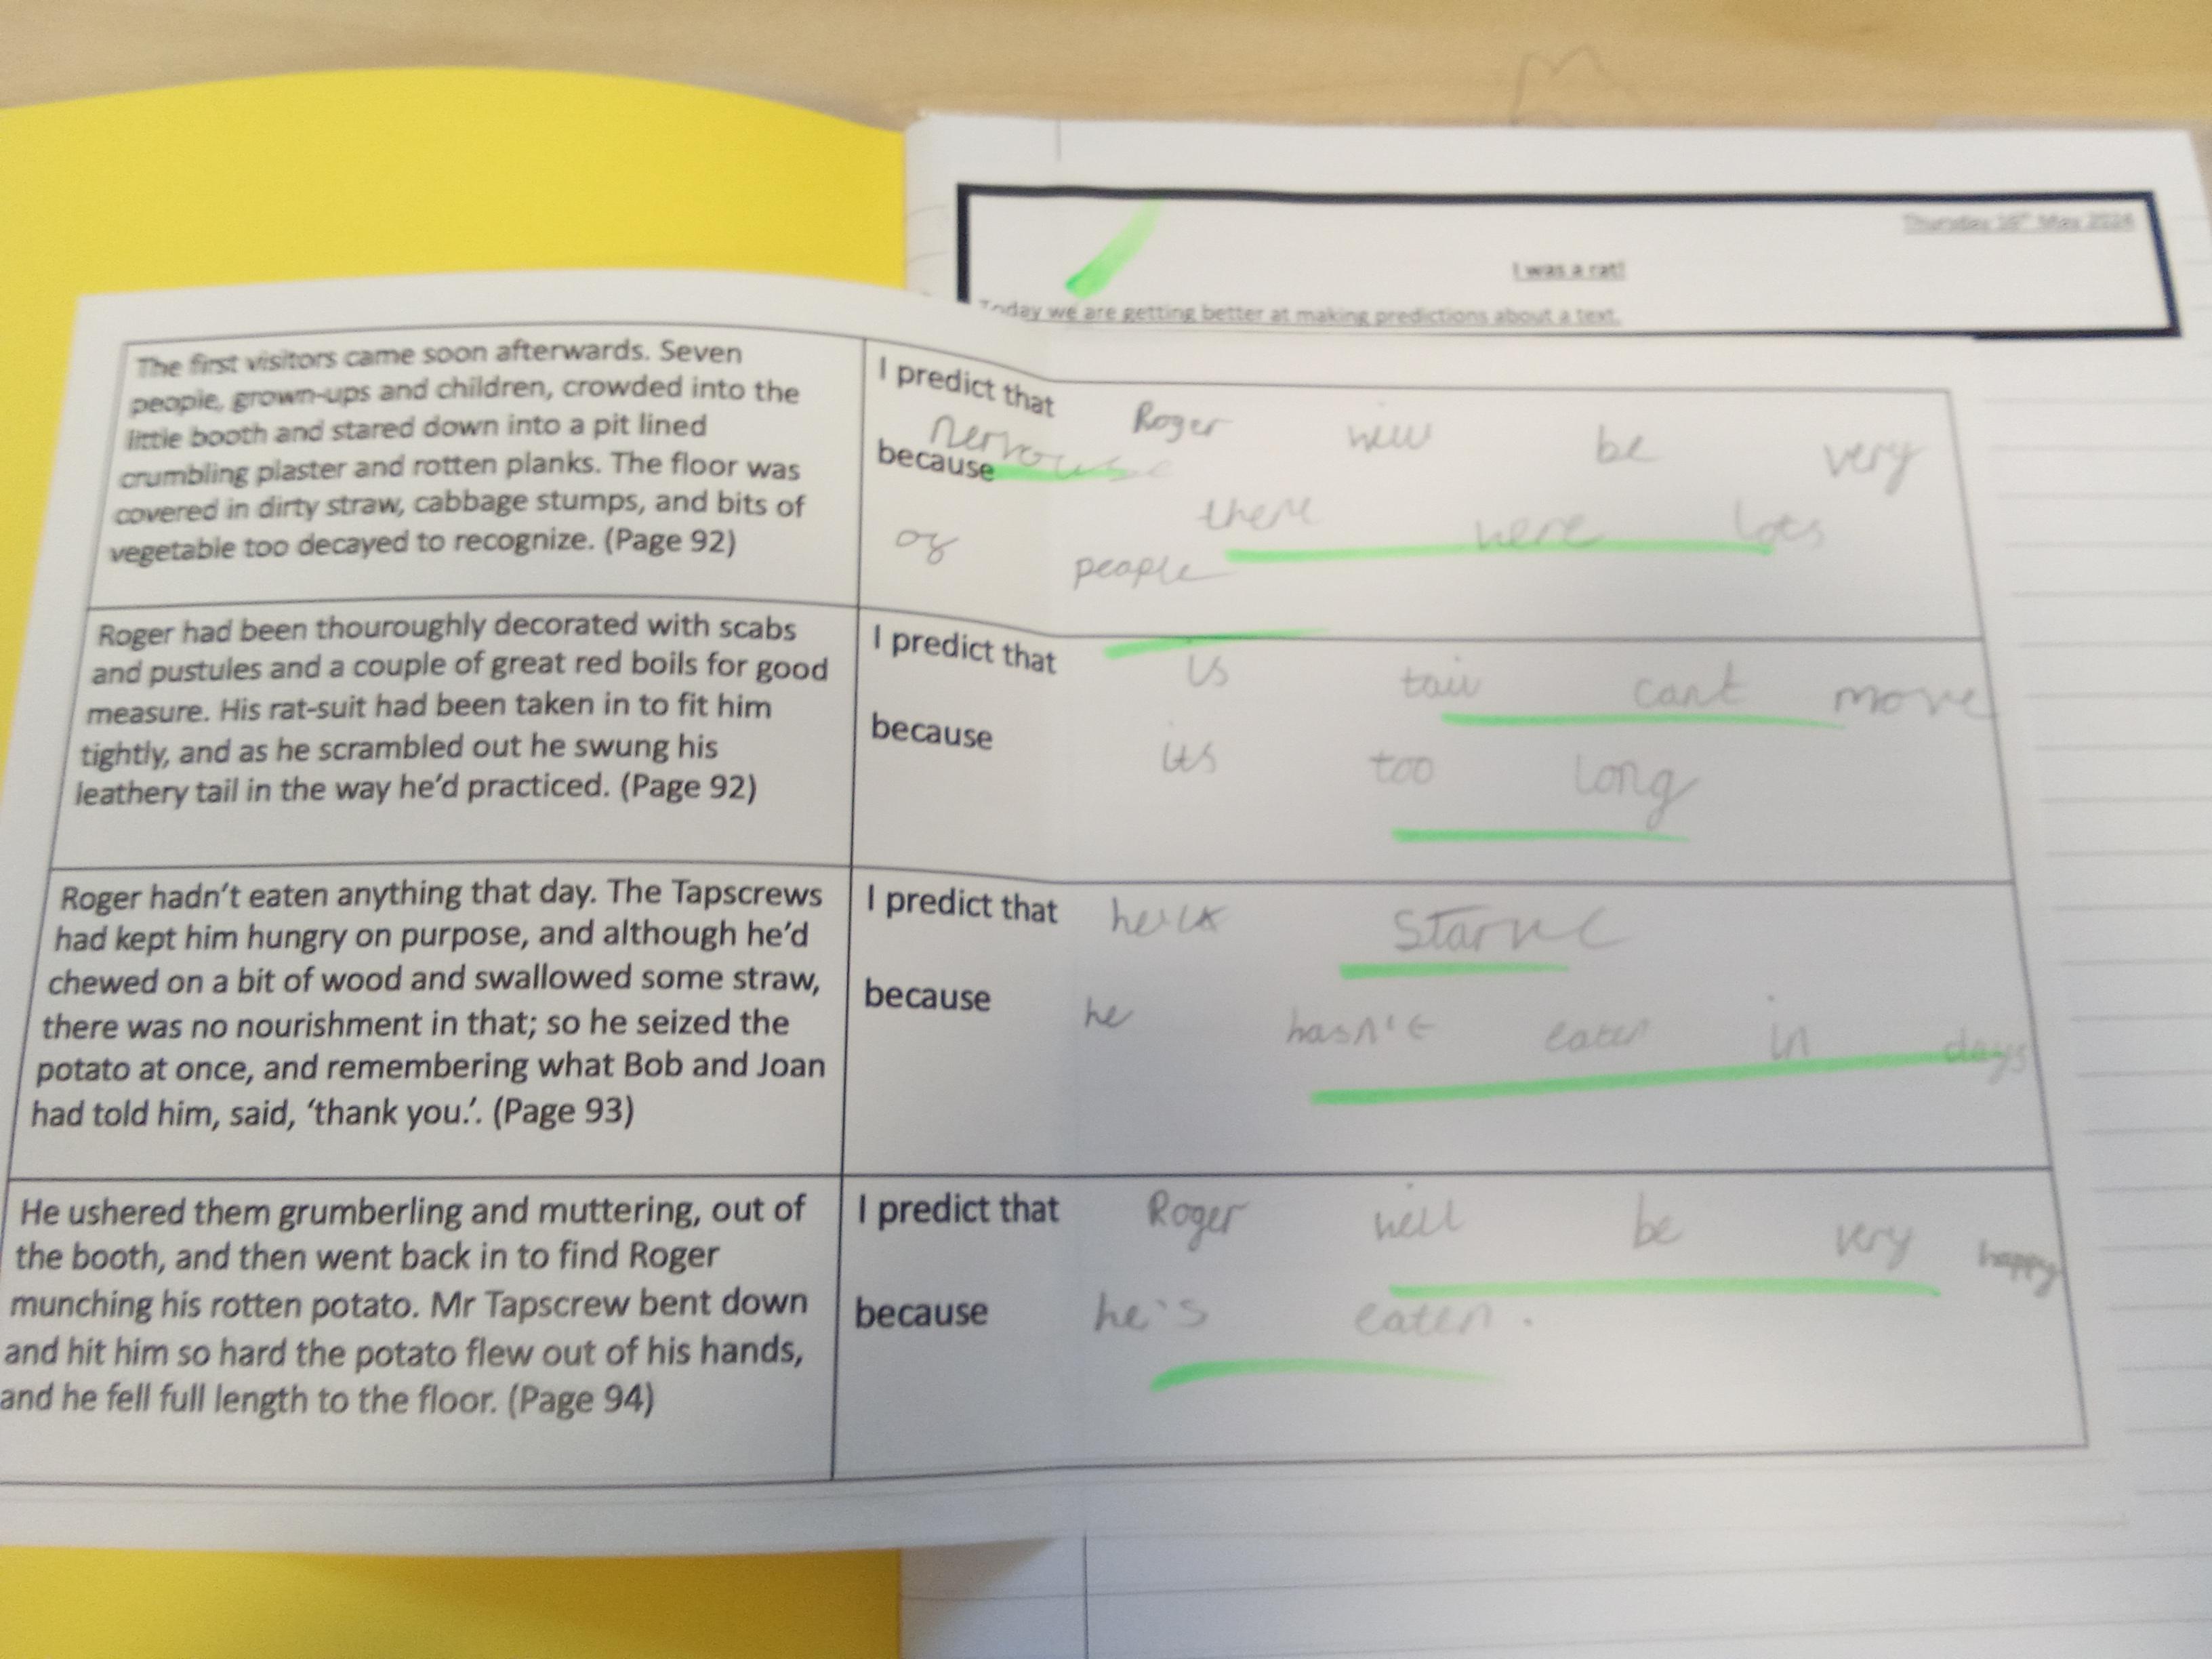 Thursday 16th May 2024
I was a rat!
Today we are getting better at making predictions about a text.
The first visitors came soon afterwards. Seven
people, grown-ups and children, crowded into the
little booth and stared down into a pit lined
crumbling plaster and rotten planks. The floor was
covered in dirty straw, cabbage stumps, and bits of
vegetable too decayed to recognize. (Page 92)
I predict that Roger will be very
nervouse
because there were lots
of people
Roger had been thouroughly decorated with scabs
and pustules and a couple of great red boils for good
measure. His rat-suit had been taken in to fit him
tightly, and as he scrambled out he swung his
leathery tail in the way he'd practiced. (Page 92)
I predict that is tail cant move
because its too long
Roger hadn't eaten anything that day. The Tapscrews
had kept him hungry on purpose, and although he'd
chewed on a bit of wood and swallowed some straw,
there was no nourishment in that; so he seized the
potato at once, and remembering what Bob and Joan
had told him, said, 'thank you.'. (Page 93)
I predict that starve
because he hasn't eaten in days
He ushered them grumberling and muttering, out of
the booth, and then went back in to find Roger
munching his rotten potato. Mr Tapscrew bent down
and hit him so hard the potato flew out of his hands,
and he fell full length to the floor. (Page 94)
I predict that Roger will be very happy
because he's eaten.